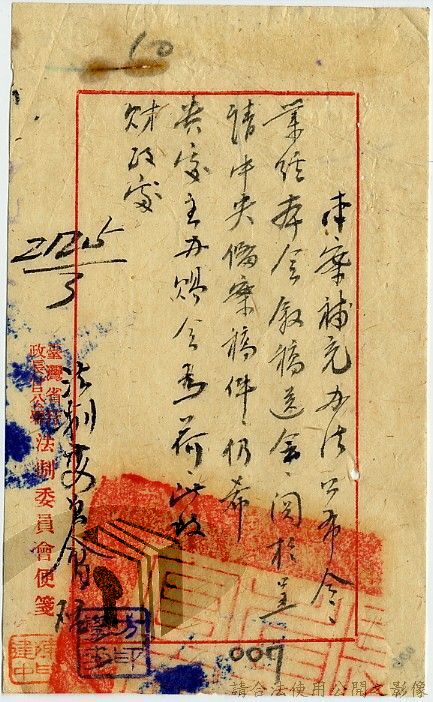 10
本案補充办法公布令
業经本会叙稿送会関於呈
請中央俻案稿件仍希
貴處主办賜会為荷此致
財政處
法制委員會啟
21725/3
臺灣省行政長官公署法制委員會便箋
007
請合法使用公開之影像